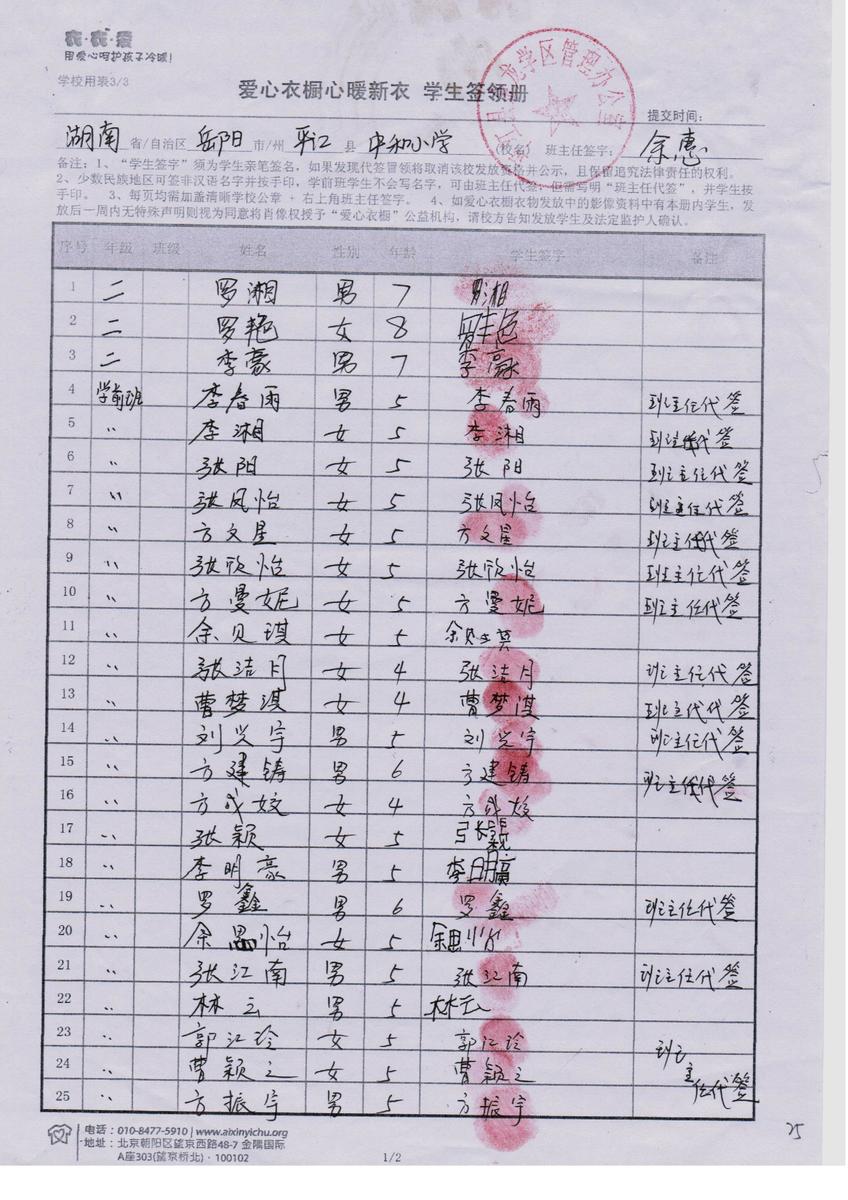 衣·衣·爱
用爱心呵护孩子冷暖!
学校用表3/3
爱心衣橱心暖新衣 学生签领册
龙学区管理办公室
提交时间:
湖南 省/自治区 岳阳 市/州 平江 县 中和小学 (校名) 班主任签字: 余惠
备注:1、“学生签字”须为学生亲笔签名,如果发现代签冒领将取消该校发放资格并公示,且保留追究法律责任的权利。
2、少数民族地区可签非汉语名字并按手印,学前班学生不会写名字,可由班主任代签,但需写明“班主任代签”,并学生按
手印。 3、每页均需加盖清晰学校公章 + 右上角班主任签字。 4、如爱心衣橱衣物发放中的影像资料中有本册内学生,发
放后一周内无特殊声明则视为同意将肖像权授予“爱心衣橱”公益机构,请校方告知发放学生及法定监护人确认。
序号 年级 班级 姓名 性别 年龄 学生签字 备注
1 二 罗湘 男 7 罗湘
2 二 罗艳 女 8 罗艳
3 二 李豪 男 7 李豪
4 学前班 李春雨 男 5 李春雨 班主任代签
5 〃 李湘 女 5 李湘 班主任代签
6 〃 张阳 女 5 张阳 班主任代签
7 〃 张凤怡 女 5 张凤怡 班主任代签
8 〃 方文星 女 5 方文星 班主任代签
9 〃 张欣怡 女 5 张欣怡 班主任代签
10 〃 方曼妮 女 5 方曼妮 班主任代签
11 〃 余贝琪 女 5 余贝
12 〃 张洁月 女 4 张洁月 班主任代签
13 〃 曹梦淇 女 4 曹梦淇 班主代代签
14 〃 刘兴宇 男 5 刘兴宇 班主任代签
15 〃 方建铸 男 6 方建铸 班主任代签
16 〃 方成姣 女 4 方成姣
17 〃 张颖 女 5 张颖
18 〃 李明豪 男 5 李明
19 〃 罗鑫 男 6 罗鑫 班主任代签
20 〃 余思怡 女 5 余思怡
21 〃 张江南 男 5 张江南 班主任代签
22 〃 林云 男 5 林云
23 〃 郭江玲 女 5 郭江玲 班主任代签
24 〃 曹颖之 女 5 曹颖之
25 〃 方振宇 男 5 方振宇
电话:010-8477-5910 | www.aixinyichu.org
地址:北京朝阳区望京西路48-7 金隅国际
A座303(望京桥北)· 100102
1/2
25